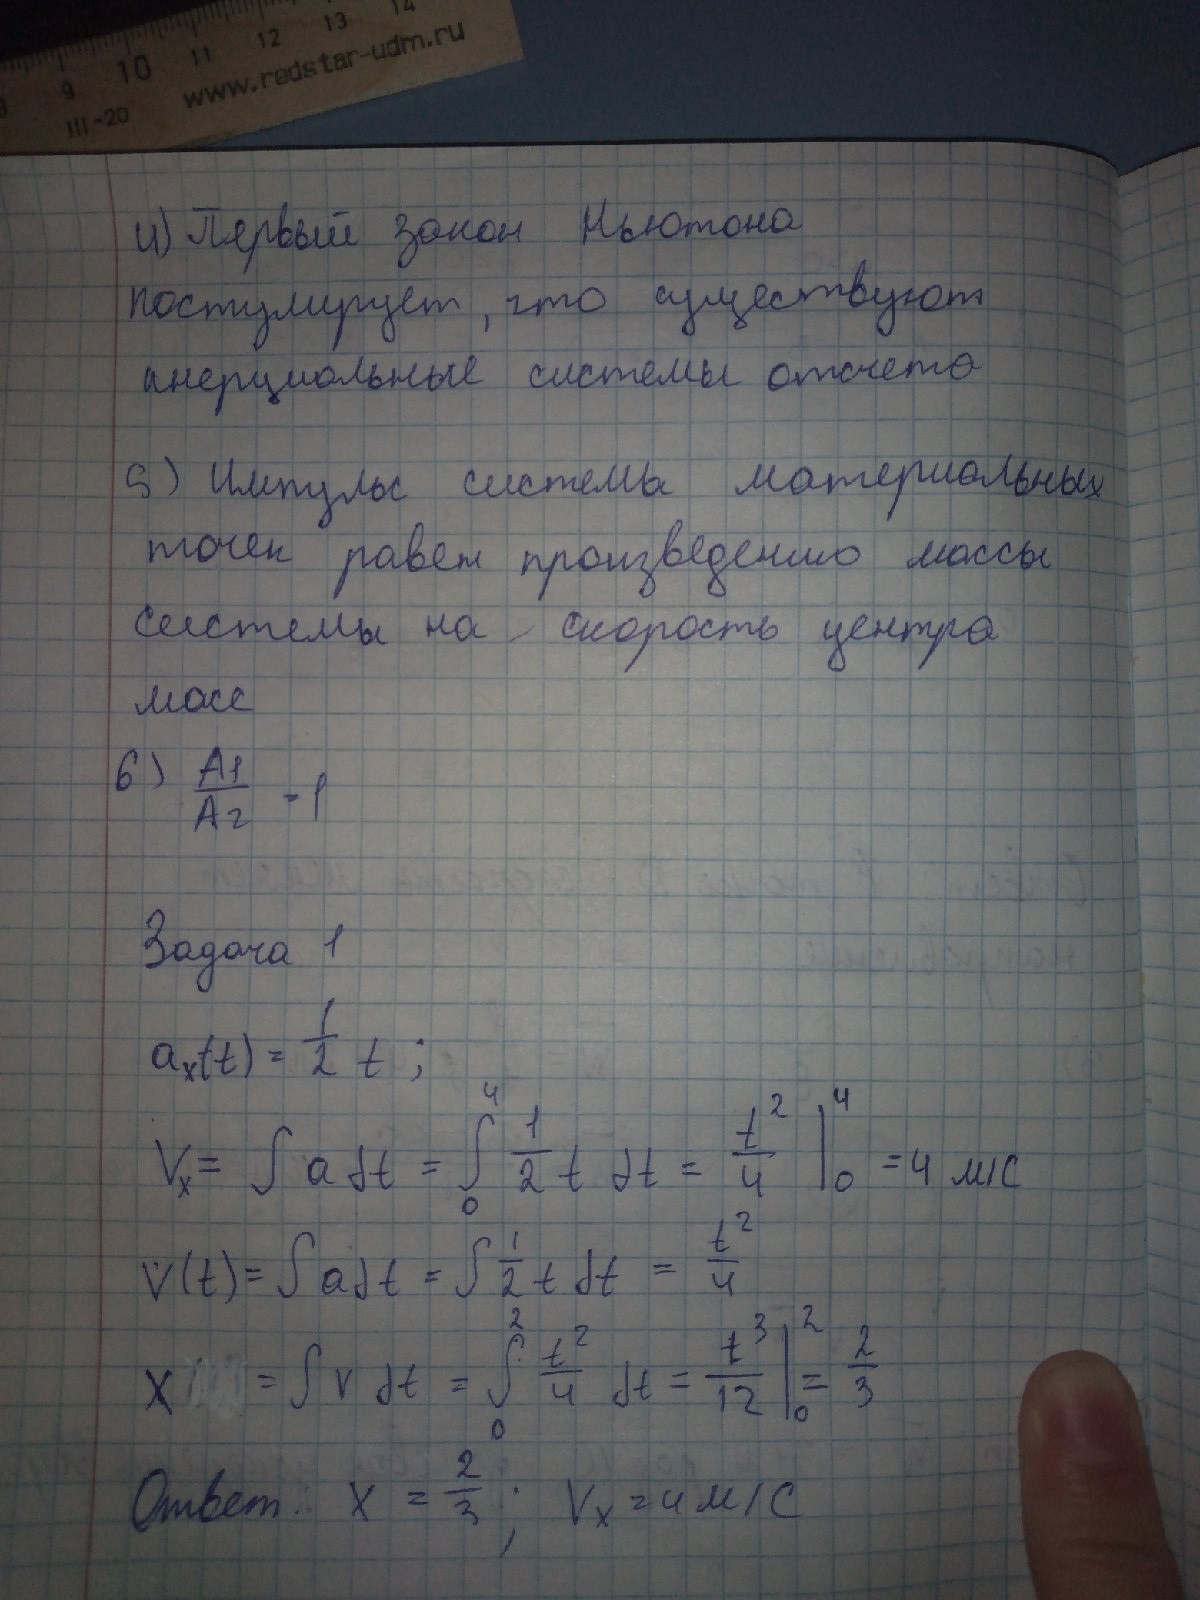 9 10 11 12 13 14
III-20 www.redstar-udm.ru
4) Первый закон Ньютона
постулирует, что существуют
инерциальные системы отсчета
5) Импульс системы материальных
точек равен произведению массы
системы на скорость центра
масс
6) A1/A2 = 1
Задача 1
aₓ(t) = 1/2 t ;
Vₓ = ∫ a dt = ∫₀⁴ 1/2 t dt = t²/4 |₀⁴ = 4 м/с
v(t) = ∫ a dt = ∫ 1/2 t dt = t²/4
x = ∫ v dt = ∫₀² t²/4 dt = t³/12 |₀² = 2/3
Ответ: x = 2/3 ; Vₓ = 4 м/с